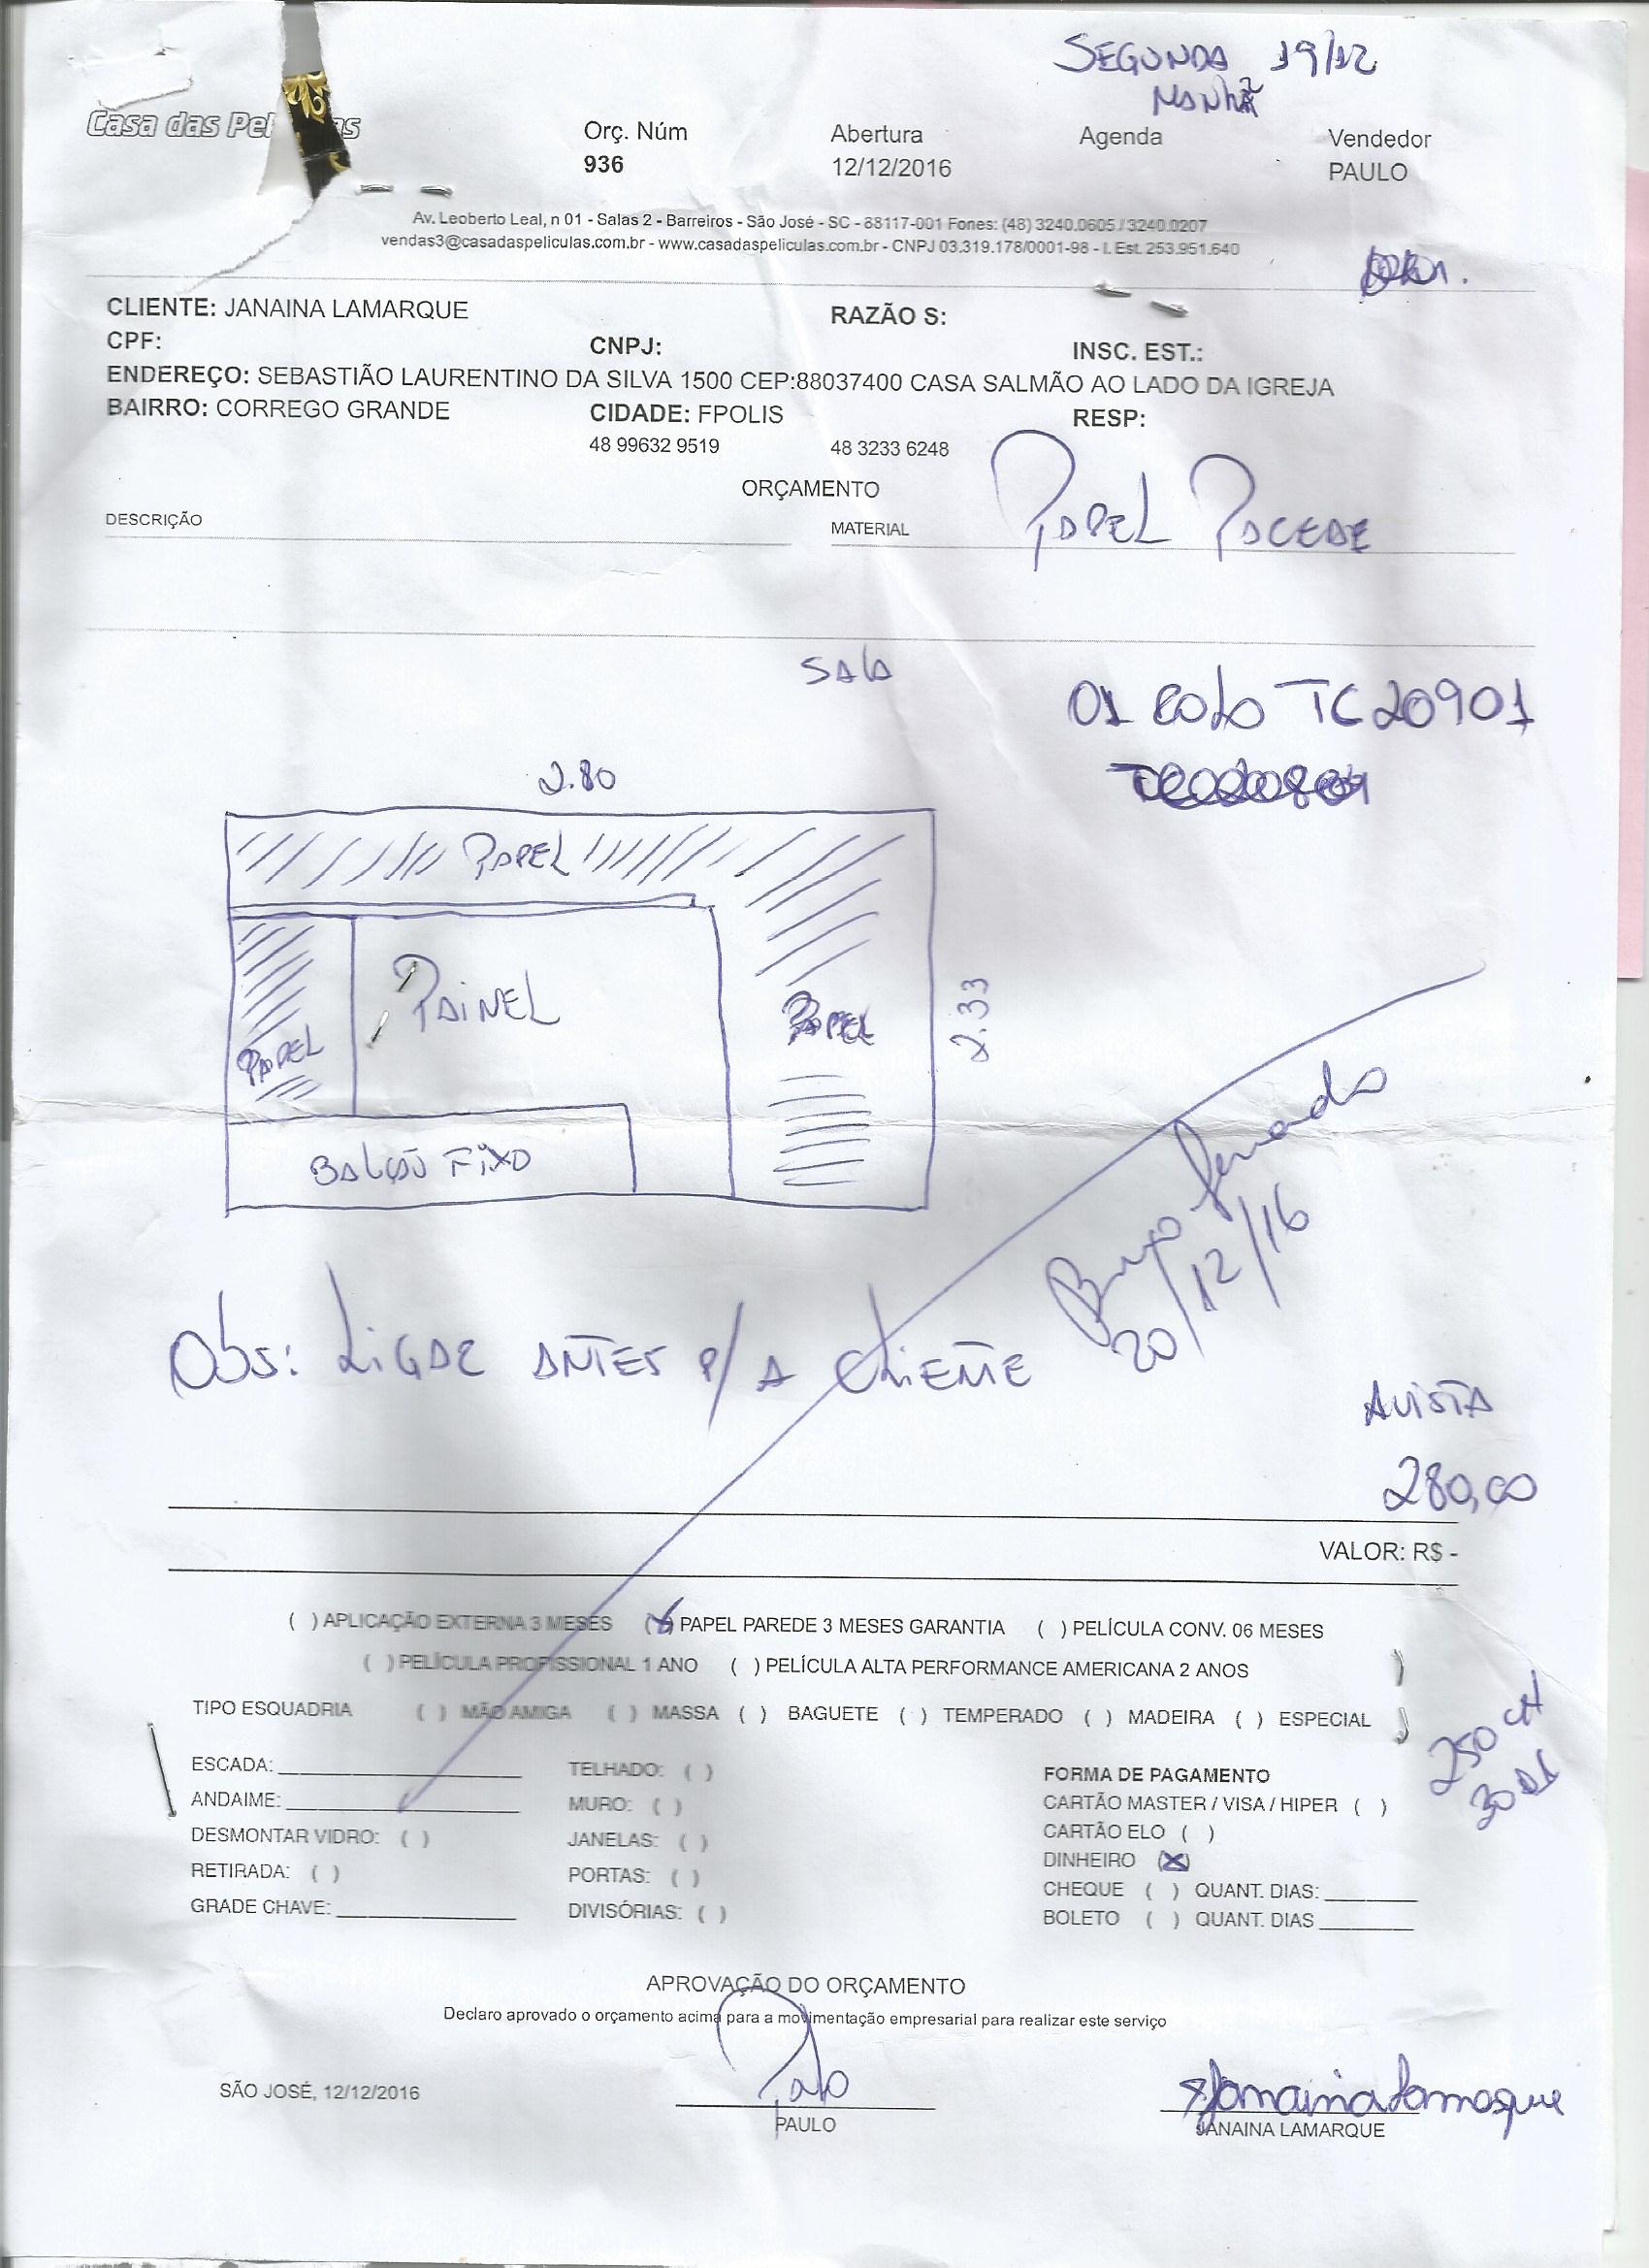 SEGUNDA 19/12
MANHÃ
Casa das Pel as
Orç. Núm Abertura Agenda Vendedor
936 12/12/2016 PAULO
Av. Leoberto Leal, n 01 - Salas 2 - Barreiros - São José - SC - 88117-001 Fones: (48) 3240.0605 / 3240.0207
vendas3@casadaspeliculas.com.br - www.casadaspeliculas.com.br - CNPJ 03.319.178/0001-98 - I. Est. 253.951.640
CLIENTE: JANAINA LAMARQUE RAZÃO S:
CPF: CNPJ: INSC. EST.:
ENDEREÇO: SEBASTIÃO LAURENTINO DA SILVA 1500 CEP:88037400 CASA SALMÃO AO LADO DA IGREJA
BAIRRO: CORREGO GRANDE CIDADE: FPOLIS RESP:
48 99632 9519 48 3233 6248
ORÇAMENTO
DESCRIÇÃO MATERIAL PAPEL PAREDE
SALA
01 ROLO TC20901
2.80
PAPEL
PAINEL
PAPEL
PAPEL
2.33
BALCÃO FIXO
Fernando
20/12/16
Obs: LIGAR ANTES P/ A CLIENTE
AVISTA
280,00
VALOR: R$ -
( ) APLICAÇÃO EXTERNA 3 MESES (X) PAPEL PAREDE 3 MESES GARANTIA ( ) PELÍCULA CONV. 06 MESES
( ) PELÍCULA PROFISSIONAL 1 ANO ( ) PELÍCULA ALTA PERFORMANCE AMERICANA 2 ANOS
TIPO ESQUADRIA ( ) MÃO AMIGA ( ) MASSA ( ) BAGUETE ( ) TEMPERADO ( ) MADEIRA ( ) ESPECIAL
250 CH
30
ESCADA: TELHADO: ( )
ANDAIME: MURO: ( )
DESMONTAR VIDRO: ( ) JANELAS: ( )
RETIRADA: ( ) PORTAS: ( )
GRADE CHAVE: DIVISÓRIAS: ( )
FORMA DE PAGAMENTO
CARTÃO MASTER / VISA / HIPER ( )
CARTÃO ELO ( )
DINHEIRO (X)
CHEQUE ( ) QUANT. DIAS:
BOLETO ( ) QUANT. DIAS
APROVAÇÃO DO ORÇAMENTO
Declaro aprovado o orçamento acima para a movimentação empresarial para realizar este serviço
SÃO JOSÉ, 12/12/2016
Paulo
PAULO
Janaina Lamarque
JANAINA LAMARQUE